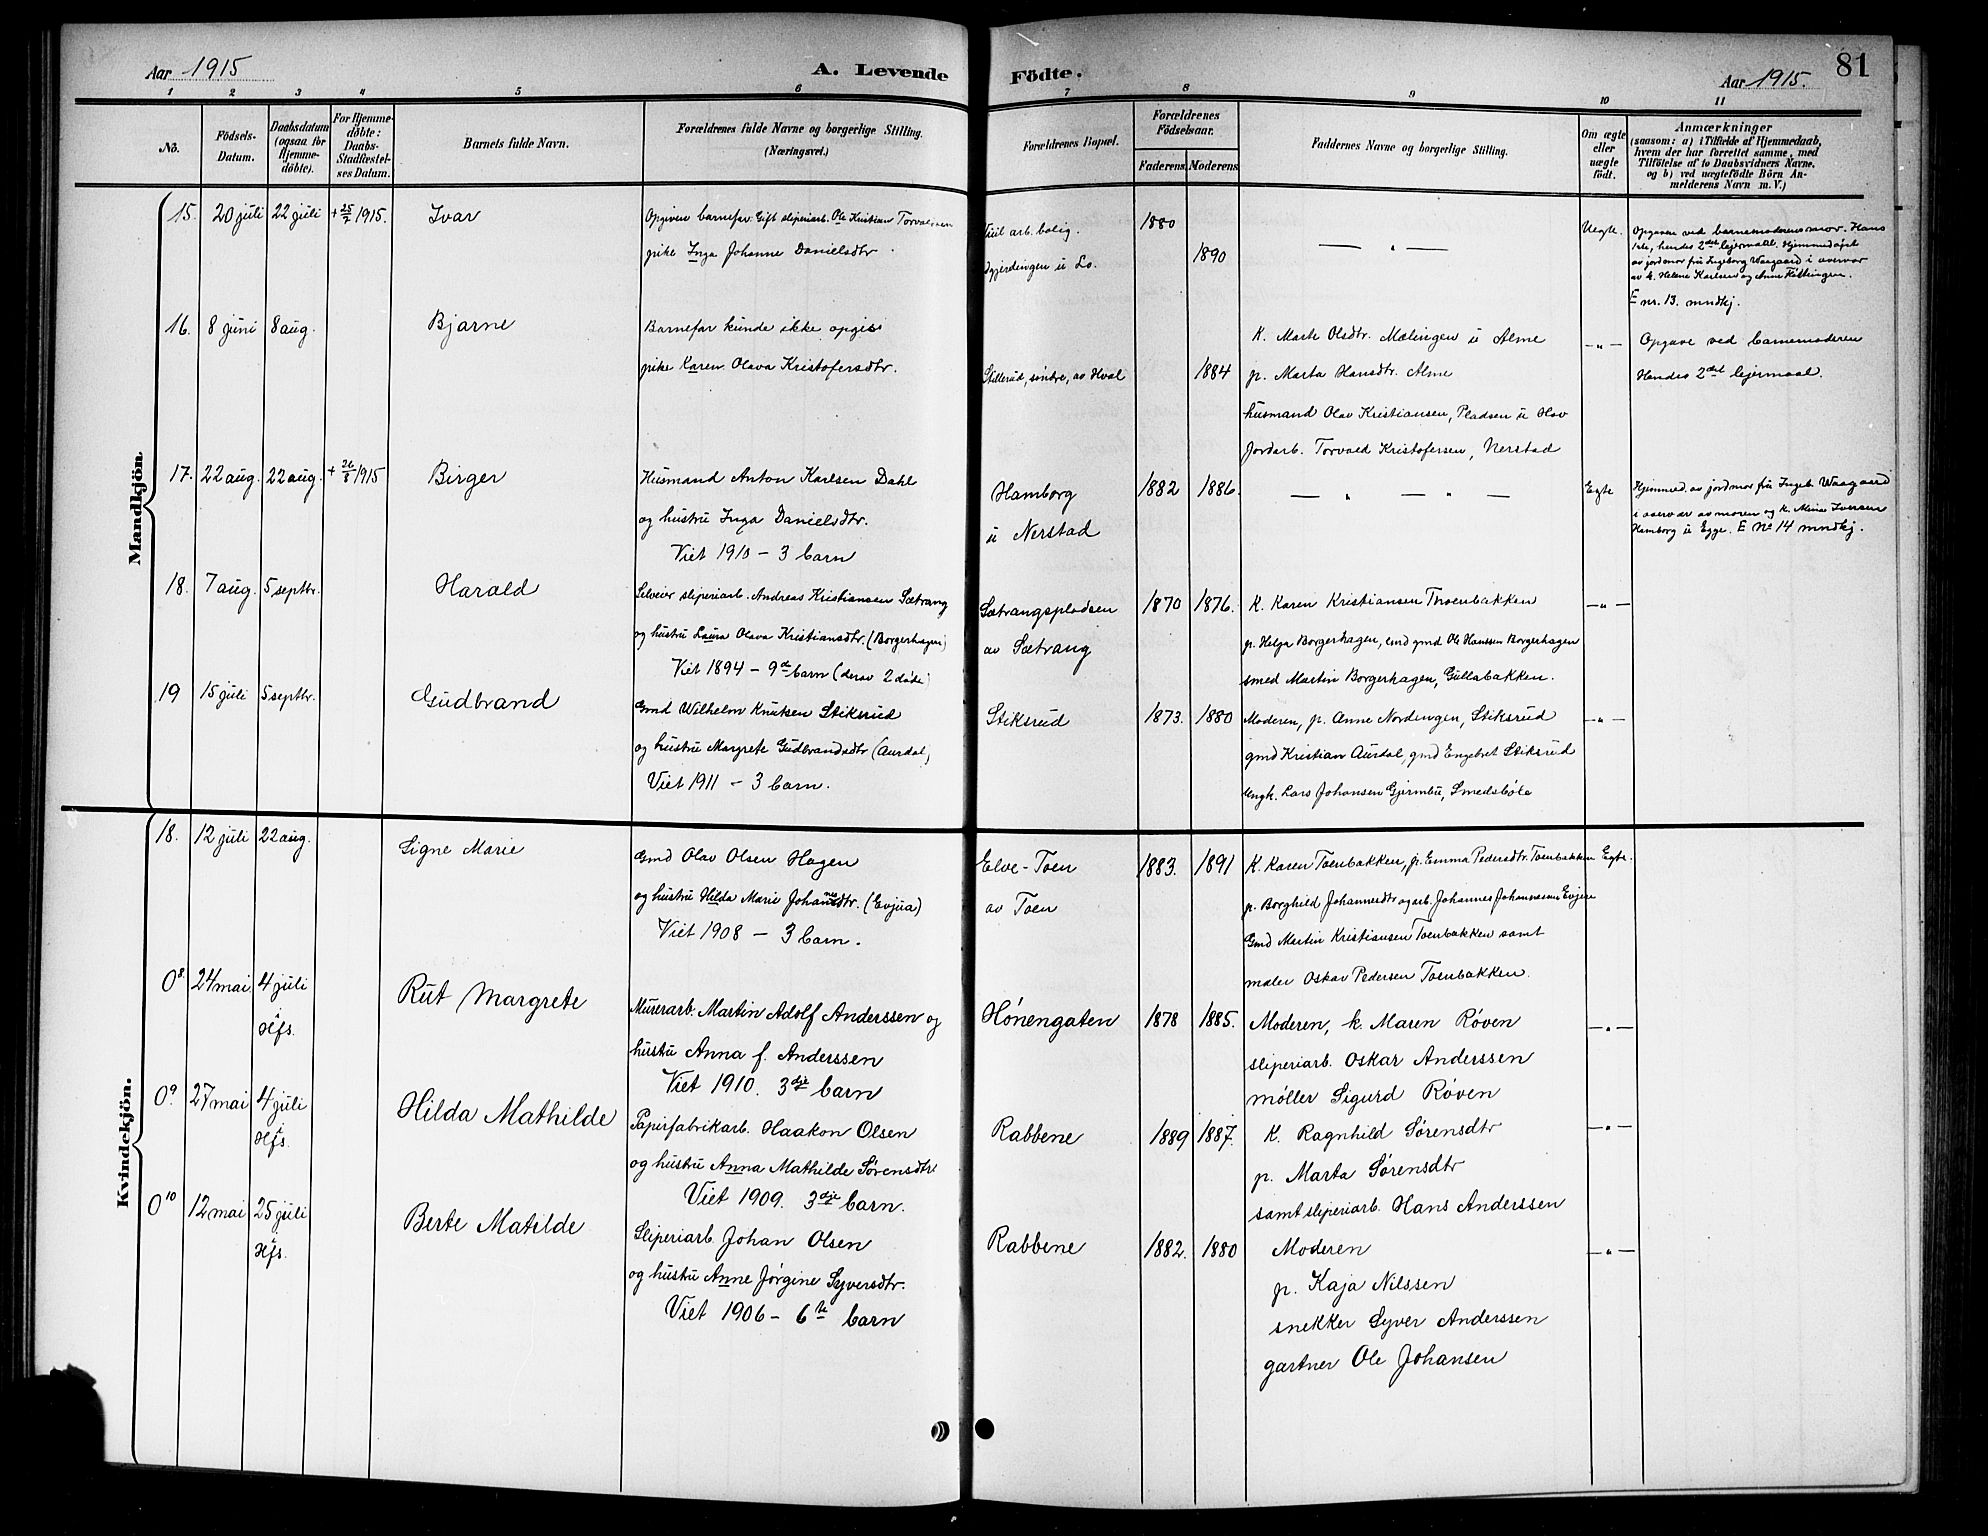 Aar 1915 A. Levende Födte. Aar 1915. 81
1 2 3 4 5 6 7 8 9 10 11
No. Födsels-Datum. Daabsdatum (ogsaa for Hjemmedöbte). For Hjemmedöbte: Daabs-Stadfæstelses Datum. Barnets fulde Navn. Forældrenes fulde Navne og borgerlige Stilling. (Næringsvei.) Forældrenes Bopæl. Forældrenes Födselsaar. Faderens. Moderens. Faddernes Navne og borgerlige Stilling. Om ægte eller uægte födt. Anmærkninger (saasom: a) i Tilfælde af Hjemmedaab, hvem der har forrettet samme, med Tilföielse af to Daabsvidners Navne, og b) ved uægtefödte Börn Anmelderens Navn m. V.)
Mandkjön.
15. 20 juli 22 juli + 25/7 1915. Ivar Opgiven barnefar: Gift sliperiarb. Ole Kristian Torvaldsen arb. bolig. 1880 — „ — Uegte. Opgaven ved barnemoderens mor. Hans
pike Inga Johanne Danielsdtr. u Lo. 1890 hendes 2det lejermaal. Hjemmedøpt
av jordmor fru Ingeborg Waagaard i overvær
av k. Helene Karlsen og Anne
E nr. 13. mndkj.
16. 8 juni 8 aug. Bjarne Barnefar kunde ikke opgis K. Marte Olsdtr. Mælingen u Alme — „ — Opgave ved barnemoderen
pike Karen Olava Kristofersdtr. Stillerud, søndre, av Hval 1884 p. Marta Hansdtr. Alme Hendes 2det lejermaal.
husmand Olav Kristiansen, Pladsen u Hov
Jordarb. Torvald Kristofersen, Nerstad
17. 22 aug. 22 aug. + 26/8 1915 Birger Husmand Anton Karlsen Dahl Hamborg 1882 1886. — „ — „ — Egte Hjemmed. av jordmor fru Ingeb. Waagaard
og hustru Inga Danielsdtr. u Nerstad i overvær av moren og k. Mina Iversen
Viet 1910 – 3 barn Hamborg u Egge. E No 14 mndkj.
18. 7 aug. 5 septbr. Harald Selveier sliperiarb. Andreas Kristiansen Sætrang Sætrangspladsen 1870 1876. K. Karen Kristiansen Thoenbakken — „ —
og hustru Laura Olava Kristiansdtr. (Borgerhagen) av Sætrang p. Helga Borgerhagen, gmd Ole Hanssen Borgerhagen
Viet 1894 – 9de barn (derav 2 døde) smed Martin Borgerhagen, Gullabakken.
19 15 juli 5 septbr. Gudbrand Gmd Wilhelm Knutsen Stiksrud Stiksrud 1873. 1880 Moderen, p. Anne Nordengen, Stiksrud — „ —
og hustru Margrete Gudbrandsdtr (Aurdal) gmd Kristian Aurdal, gmd Engebret Stiksrud
Viet 1911 – 3 barn. Ungk. Lars Johansen Gjermbu, Smedsbøle
Kvindekjön.
18. 12 juli 22 aug. Signe Marie Gmd Olav Olsen Hagen Elve-Toen 1883. 1891 K. Karen Toenbakken, p. Emma Pedersdtr. Toenbakken Egte.
og hustru Hilda Marie Johannesdtr. (Evjua) av Toen p. Borghild Johannesdtr og arb. Johannes Johannessen Evjen
Viet 1908 – 3 barn. Gmd Martin Kristiansen Toenbakken samt
maler Oskar Pedersen Toenbakken.
08. 24 mai 4 juli Hfs. Rut Margrete Murerarb. Martin Adolf Anderssen og Hónengaten 1878 1885. Moderen, k. Maren Røven — „ —
hustru Anna f. Anderssen sliperiarb. Oskar Anderssen
Viet 1910. 3dje barn møller Sigurd Røven
09. 27 mai 4 juli Hfs. Hilda Mathilde Papirfabrikarb. Haakon Olsen Rabbene 1889 1887. K. Ragnhild Sørensdtr — „ —
og hustru Anna Mathilde Sørensdtr p. Marta Sørensdtr
Viet 1909. 3dje barn. samt sliperiarb. Hans Anderssen
010 12 mai 25 juli Hfs. Berte Matilde Sliperiarb. Johan Olsen Rabbene 1882. 1880 Moderen — „ —
og hustru Anne Jørgine Syversdtr. p. Kaja Nilssen
Viet 1906 – 6te barn snekker Syver Anderssen
gartner Ole Johansen